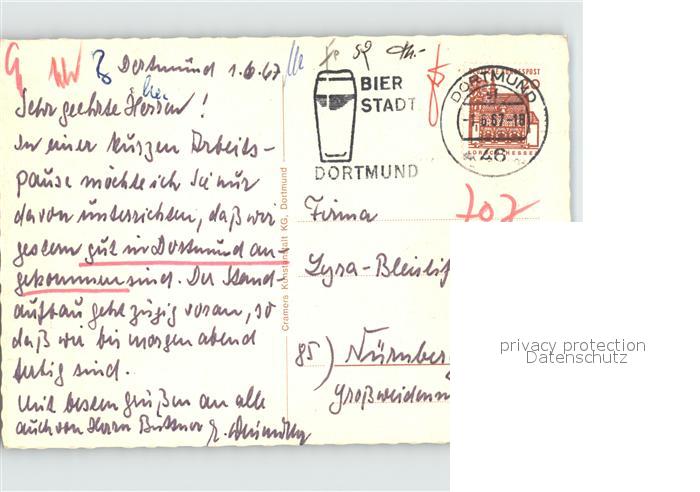 Dortmund 1.6.67
Sehr geehrte Herren!
In einer kurzen Arbeits-
pause möchte ich Sie nur
davon unterrichten, daß wir
gestern gut in Dortmund an-
gekommen sind. Der Stand-
aufbau geht zügig voran, so
daß wir bis morgen abend
fertig sind.
Mit besten Grüßen an alle
auch von Herrn Büttner
Cramers Kunstanstalt KG, Dortmund
BIER
STADT
DORTMUND
DEUTSCHE BUNDESPOST
DORTMUND
-1.6.67-18
46
LORSCH/HESSEN
707
Firma
Lyra-Bleistif
85) Nürnber
Großweidenm
privacy protection
Datenschutz